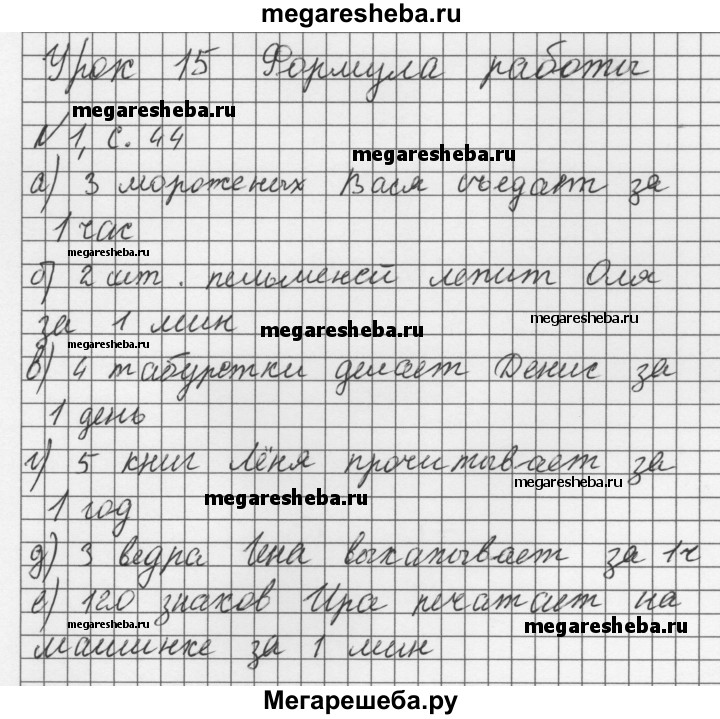 megaresheba.ru
Урок 15 Формула работы
megaresheba.ru
№1, с. 44
megaresheba.ru
а) 3 мороженых Вася съедает за
1 час
megaresheba.ru
б) 2 шт. пельменей лепит Оля
megaresheba.ru
за 1 мин
megaresheba.ru
в) 4 табуретки делает Денис за
1 день
г) 5 книг Лёня прочитывает за
megaresheba.ru
1 год
megaresheba.ru
д) 3 ведра Гена выкапывает за 1 ч
е) 120 знаков Ира печатает на
megaresheba.ru
megaresheba.ru
машинке за 1 мин
Мегарешеба.ру